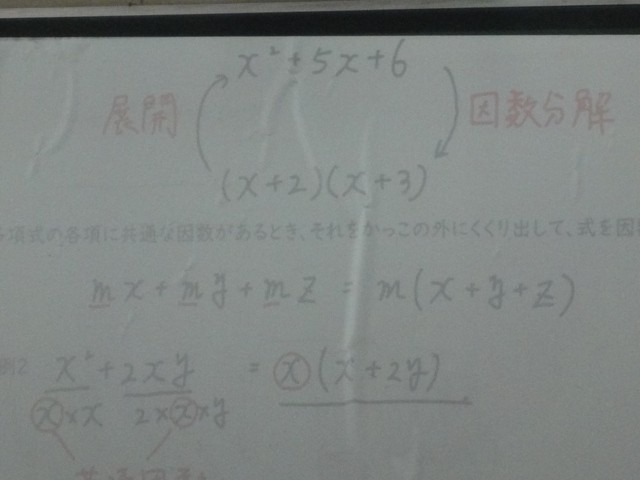 x² + 5x + 6
展開
因数分解
(x+2)(x+3)
多項式の各項に共通な因数があるとき、それをかっこの外にくくり出して、式を因
mx + my + mz = m(x+y+z)
例2 x² + 2xy = x(x+2y)
x×x 2×x×y
共通因数